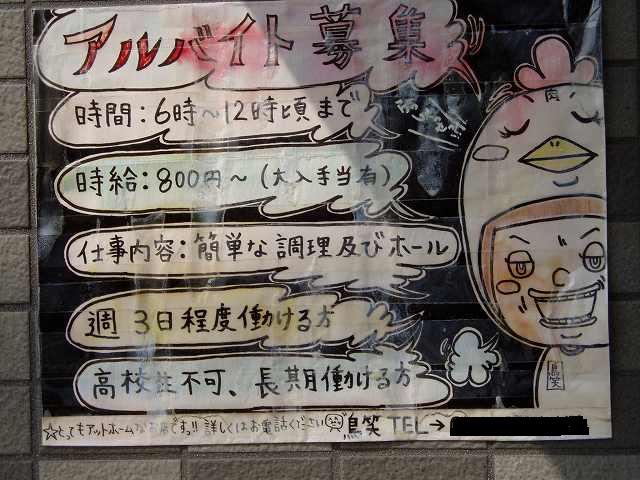 アルバイト募集
時間：6時〜12時頃まで
時給：800円〜（大入手当有）
仕事内容：簡単な調理及びホール
週3日程度働ける方
高校生不可、長期働ける方
☆とってもアットホームなお店ですっ!! 詳しくはお電話ください 鳥笑 TEL→
肉
鳥笑